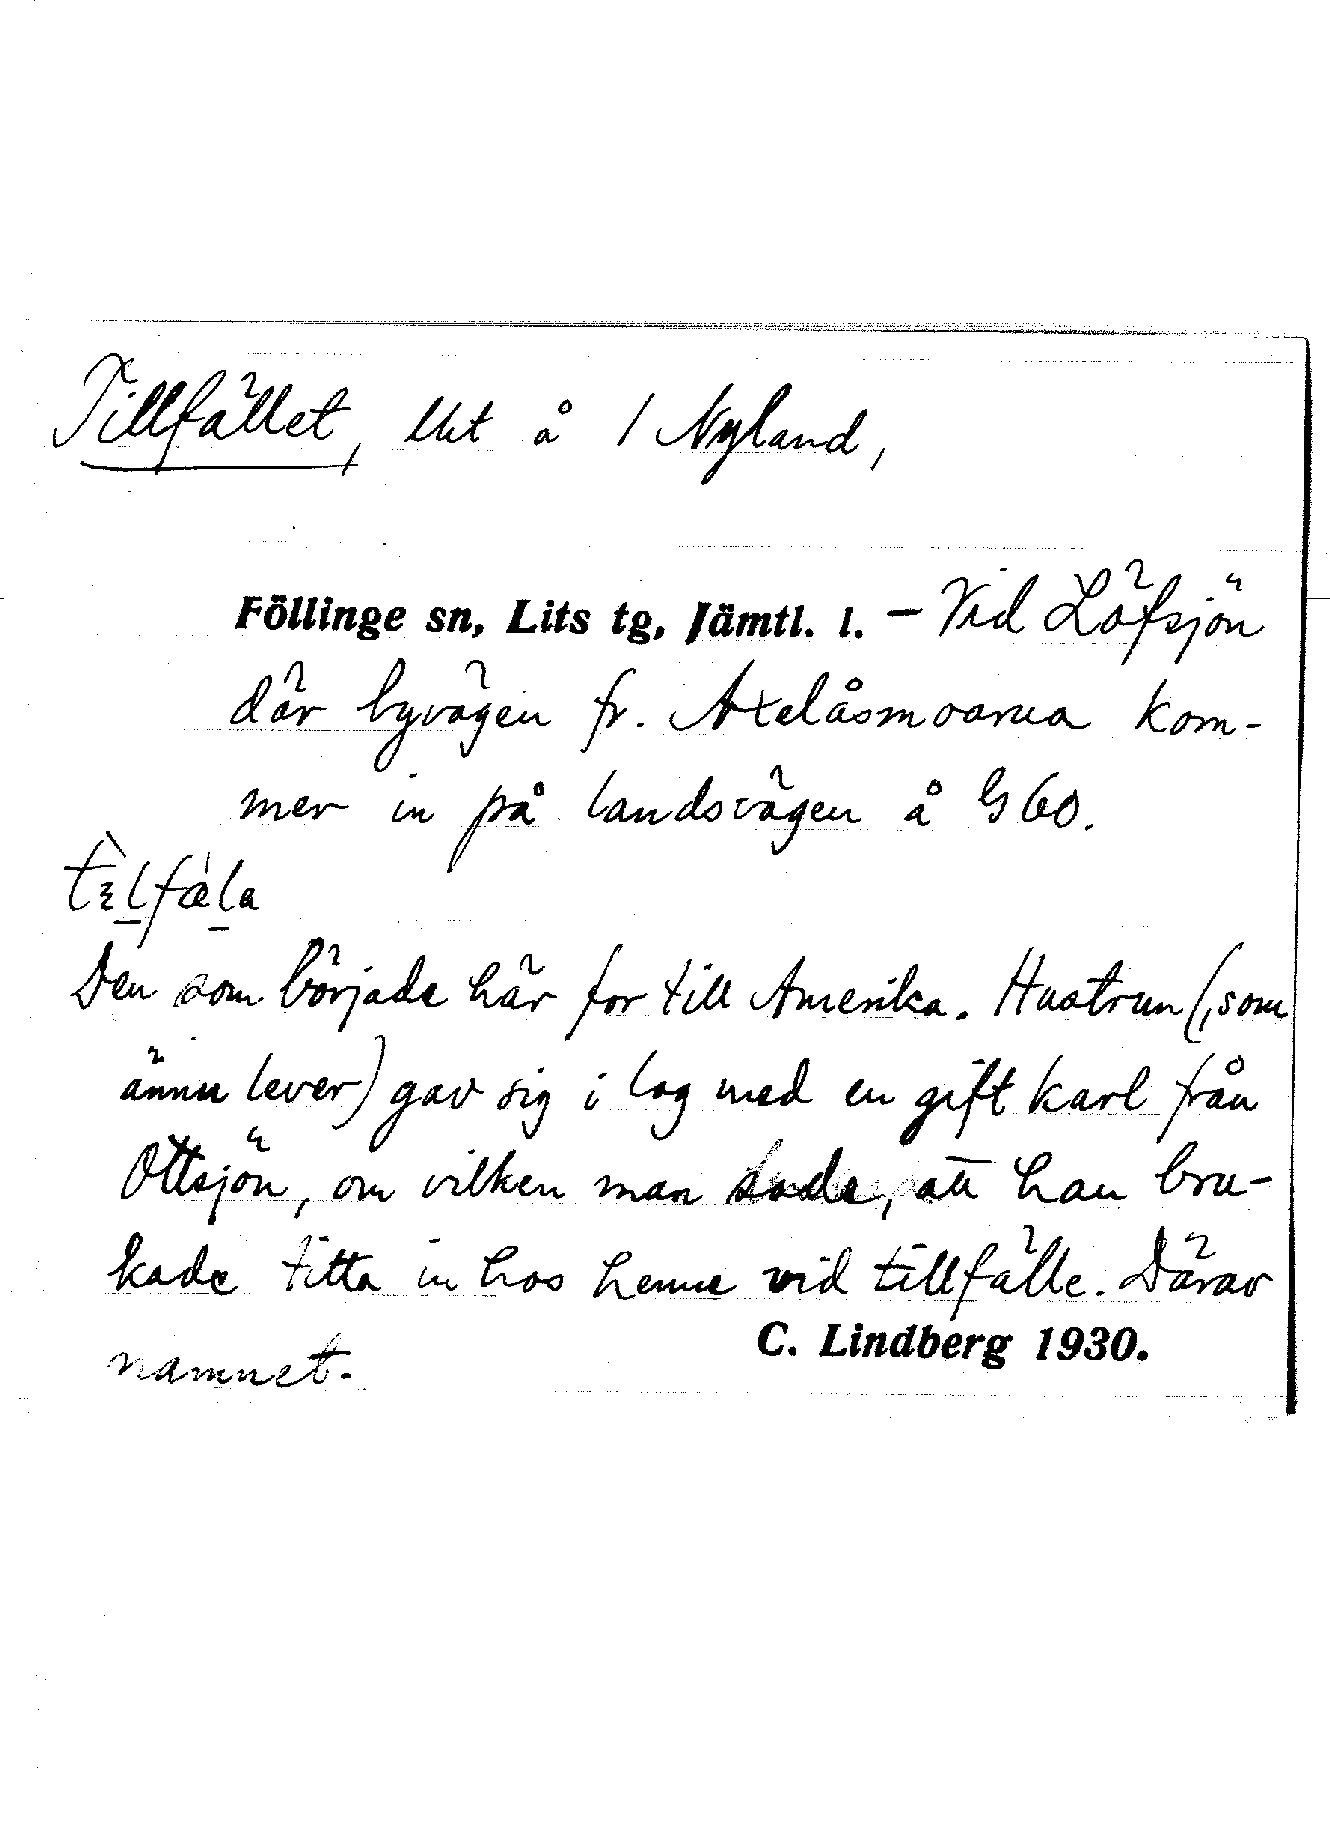 Tillfället, lht å 1 Nyland,
Föllinge sn, Lits tg, Jämtl. l. – Vid Löfsjön
där byvägen fr. Axelåsmoarna kom-
mer in på landsvägen å G 60.
Den som började här for till Amerika. Hustrun (, som
ännu lever) gav sig i lag med en gift karl från
Ottsjön, om vilken man sade, att han bru-
kade titta in hos henne vid tillfälle. Därav
namnet.
C. Lindberg 1930.